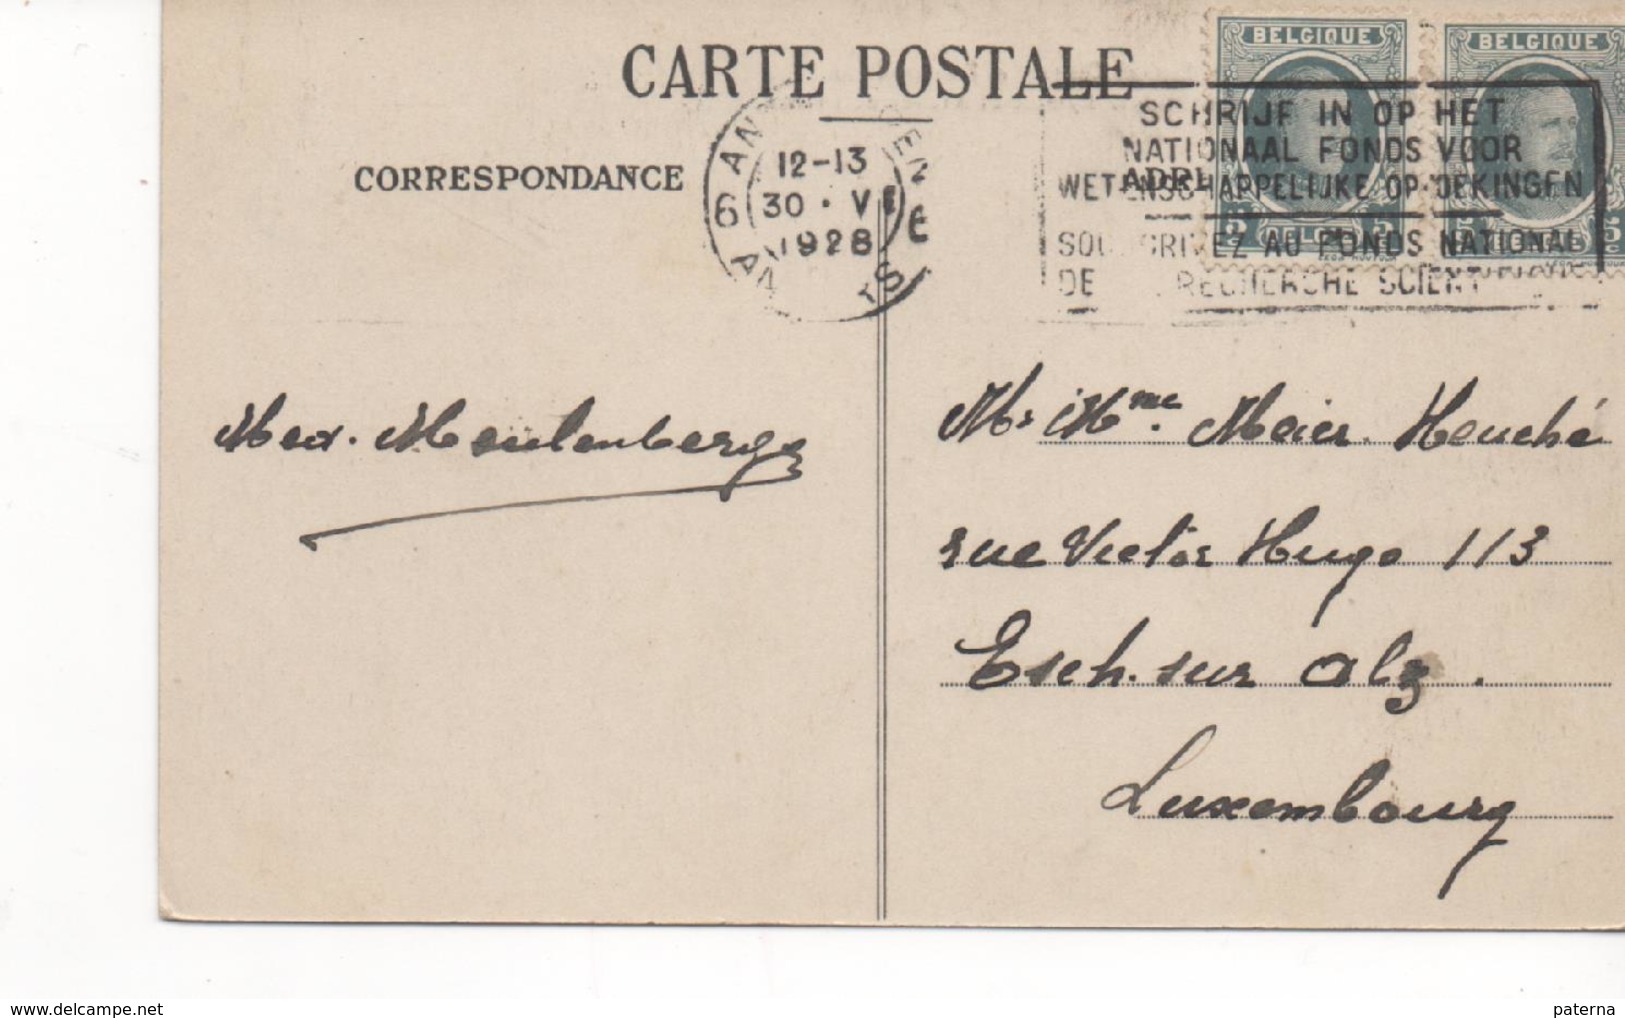 CARTE POSTALE
BELGIQUE
BELGIQUE
CORRESPONDANCE
12-13
30 · VI
1928
6
6
SCHRIJF IN OP HET
NATIONAAL FONDS VOOR
WETENSCHAPPELIJKE OPZOEKINGEN
SOUSCRIVEZ AU FONDS NATIONAL
DE RECHERCHE SCIENT
Max. Meulenbergs
Mr Mme. Meier. Heuché
rue Victor Hugo 113
Esch. sur Alz.
Luxembourg
delcampe.net
paterna